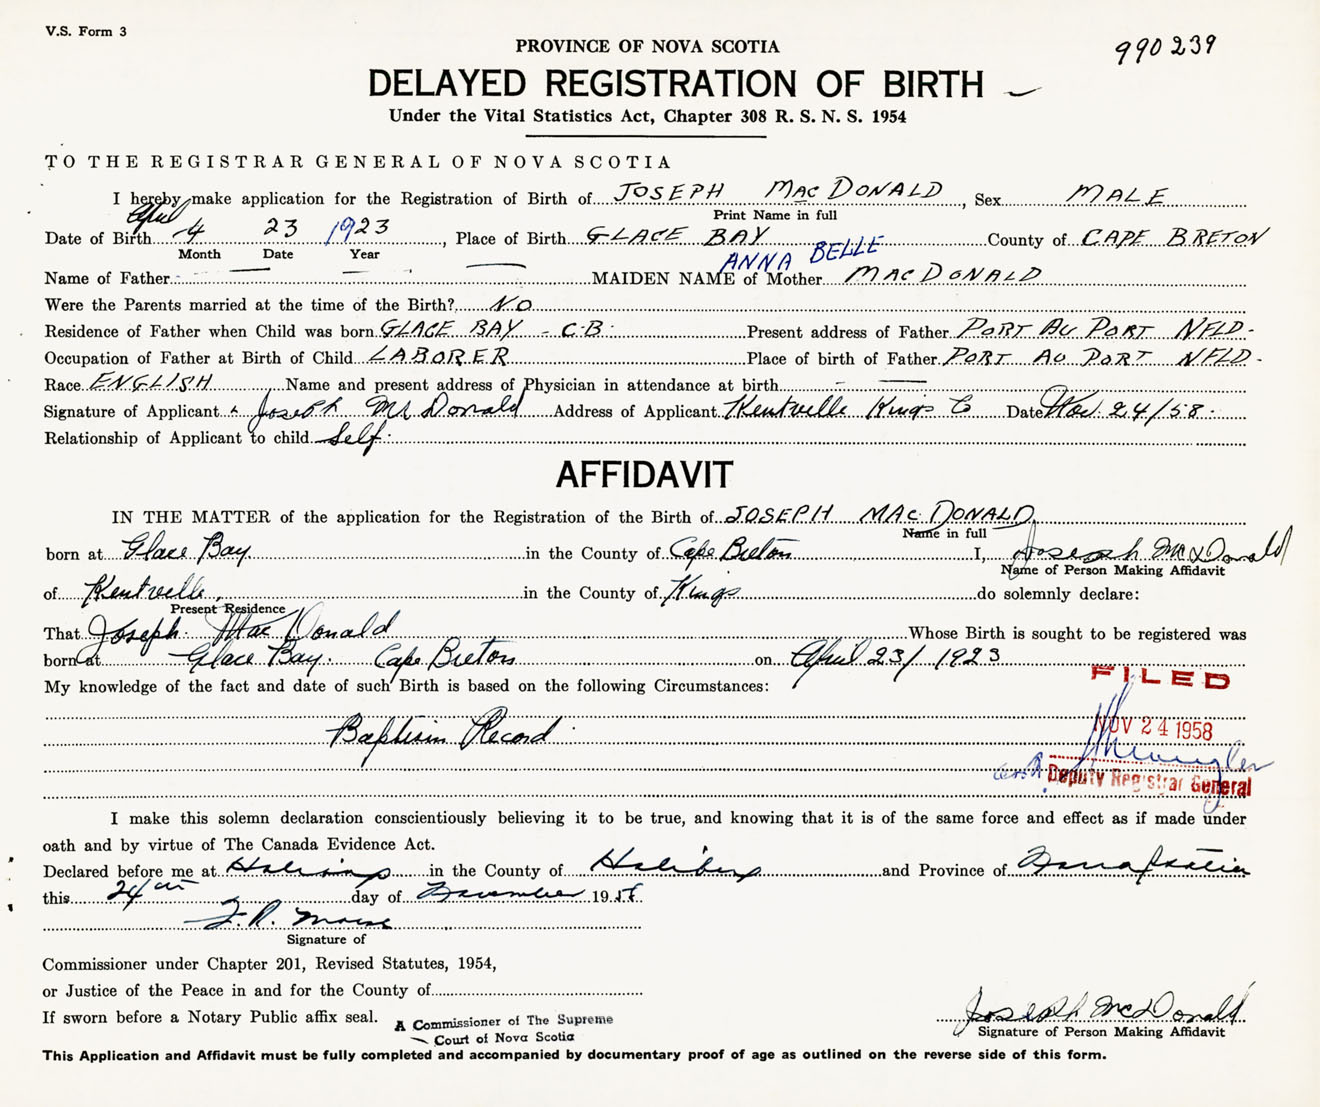 V.S. Form 3
990239
PROVINCE OF NOVA SCOTIA
DELAYED REGISTRATION OF BIRTH
Under the Vital Statistics Act, Chapter 308 R. S. N. S. 1954
TO THE REGISTRAR GENERAL OF NOVA SCOTIA
I hereby make application for the Registration of Birth of JOSEPH MACDONALD, Sex MALE
Print Name in full
April
Date of Birth 4 23 1923, Place of Birth GLACE BAY County of CAPE BRETON
Month Date Year
ANNA BELLE
Name of Father - — — MAIDEN NAME of Mother MACDONALD
Were the Parents married at the time of the Birth? NO
Residence of Father when Child was born GLACE BAY - C.B. Present address of Father PORT AU PORT NFLD-
Occupation of Father at Birth of Child LABORER Place of birth of Father PORT AU PORT NFLD-
Race ENGLISH Name and present address of Physician in attendance at birth - —
Signature of Applicant Joseph McDonald Address of Applicant Kentville Kings Co Date Nov. 24/58.
Relationship of Applicant to child Self.
AFFIDAVIT
IN THE MATTER of the application for the Registration of the Birth of JOSEPH MACDONALD
Name in full
born at Glace Bay in the County of Cape Breton I, Joseph McDonald
Name of Person Making Affidavit
of Kentville, in the County of Kings do solemnly declare:
Present Residence
That Joseph MacDonald Whose Birth is sought to be registered was
born at Glace Bay. Cape Breton on April 23/1923
FILED
My knowledge of the fact and date of such Birth is based on the following Circumstances:
NOV 24 1958
Baptism Record
Deputy Registrar General
I make this solemn declaration conscientiously believing it to be true, and knowing that it is of the same force and effect as if made under
oath and by virtue of The Canada Evidence Act.
Declared before me at Halifax in the County of Halifax and Province of Nova Scotia
this 24th day of November 1958
Signature of
Commissioner under Chapter 201, Revised Statutes, 1954,
or Justice of the Peace in and for the County of
If sworn before a Notary Public affix seal. A Commissioner of The Supreme
Court of Nova Scotia
Joseph McDonald
Signature of Person Making Affidavit
This Application and Affidavit must be fully completed and accompanied by documentary proof of age as outlined on the reverse side of this form.